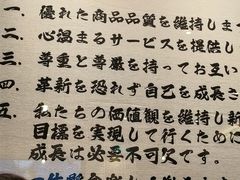 一. 優れた商品品質を維持しま
二. 心温まるサービスを提供し
三. 尊重と尊厳を持ってお互い
四. 革新を恐れず自己を成長さ
五. 私たちの価値観を維持し新
目標を実現して行くために
成長は必要不可欠です。